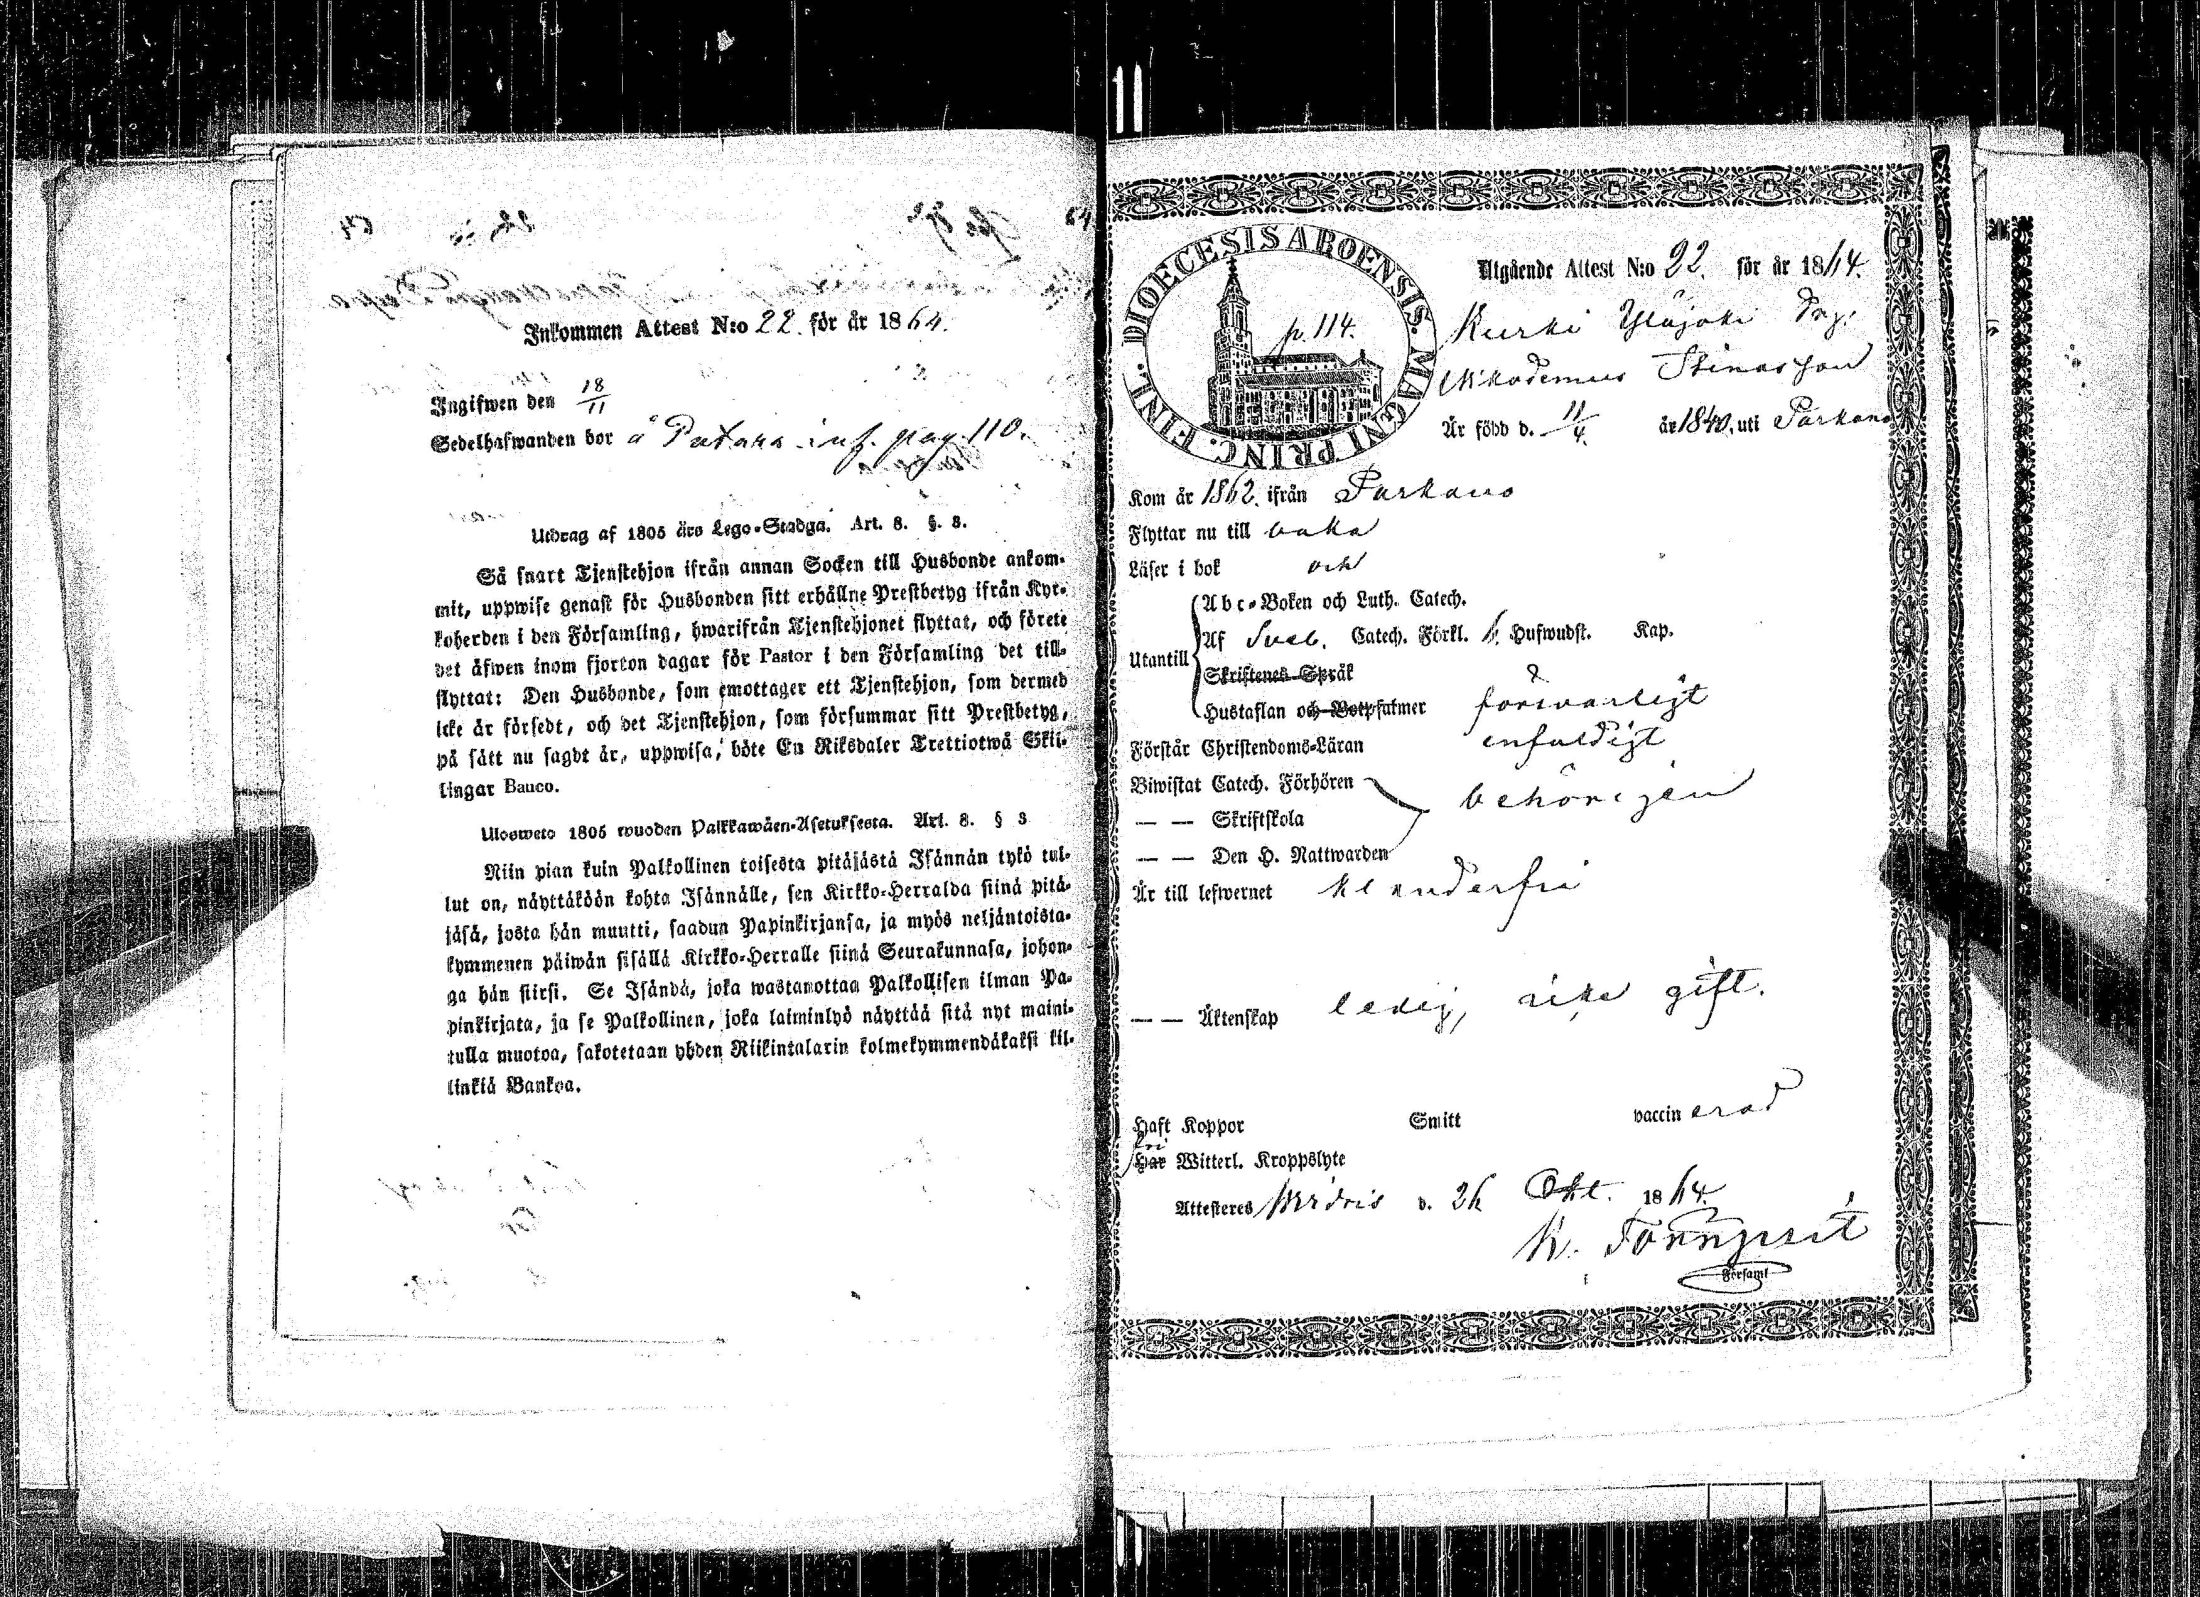 Inkommen Attest N:o 22. för år 1864.
Ingifwen den 18/11
Sedelhafwanden bor å Patana inf. pag. 110.
Utdrag af 1805 års Lego-Stadga. Art. 8. §. 8.
Så snart Tjenstehjon ifrån annan Socken till Husbonde ankom-
mit, uppwise genast för Husbonden sitt erhållne Prestbetyg ifrån Kyr-
koherden i den Församling, hwarifrån Tjenstehjonet flyttat, och förete
det äfwen inom fjorton dagar för Pastor i den Församling det till-
flyttat: Den Husbonde, som emottager ett Tjenstehjon, som dermed
icke är försedt, och det Tjenstehjon, som försummar sitt Prestbetyg,
på sätt nu sagdt är, uppwisa, böte En Riksdaler Trettiotwå Skil-
lingar Banco.
Ulosweto 1805 wuoden Palkkawäen-Asetuksesta. Art. 8. § 3
Niin pian kuin Palkollinen toisesta pitäjästä Isännän tykö tul-
lut on, näyttäköön kohta Isännälle, sen Kirkko-Herralda siinä pitä-
jäsä, josta hän muutti, saadun Papinkirjansa, ja myös neljäntoista-
kymmenen päiwän sisällä Kirkko-Herralle siinä Seurakunnasa, johon-
ga hän siirsi. Se Isändä, joka wastanottaa Palkollisen ilman Pa-
pinkirjata, ja se Palkollinen, joka laiminlyö näyttää sitä nyt maini-
tulla muotoa, sakotetaan yhden Riikintalarin kolmekymmendäkaksi kil-
linkiä Bankoa.
DIOECESIS ABOENSIS. MAGNI PRINC. FINL.
p. 114.
Utgående Attest N:o 22. för år 1864.
Kurki Yläjoki Drg:
Nikodemus Stinasson
Är född d. 11/4. år 1840. uti Parkano
Kom år 1862. ifrån Parkano
Flyttar nu till baka
Läser i bok och
Utantill
Abc-Boken och Luth. Catech.
Af Sveb. Catech. Förkl. 6. Hufwudst. Kap.
Skriftenes Språk
Hustaflan och Botpsalmer försvarligt
Förstår Christendoms-Läran enfaldigt
Biwistat Catech. Förhören behörigen
— — Skriftskola
— — Den H. Nattwarden
Är till lefwernet klanderfri
— — Äktenskap ledig, icke gift.
Haft Koppor Smitt vaccinerad
fri
Har Witterl. Kroppslyte
Attesteres Wirdois d. 26 Okt. 1864.
Församl